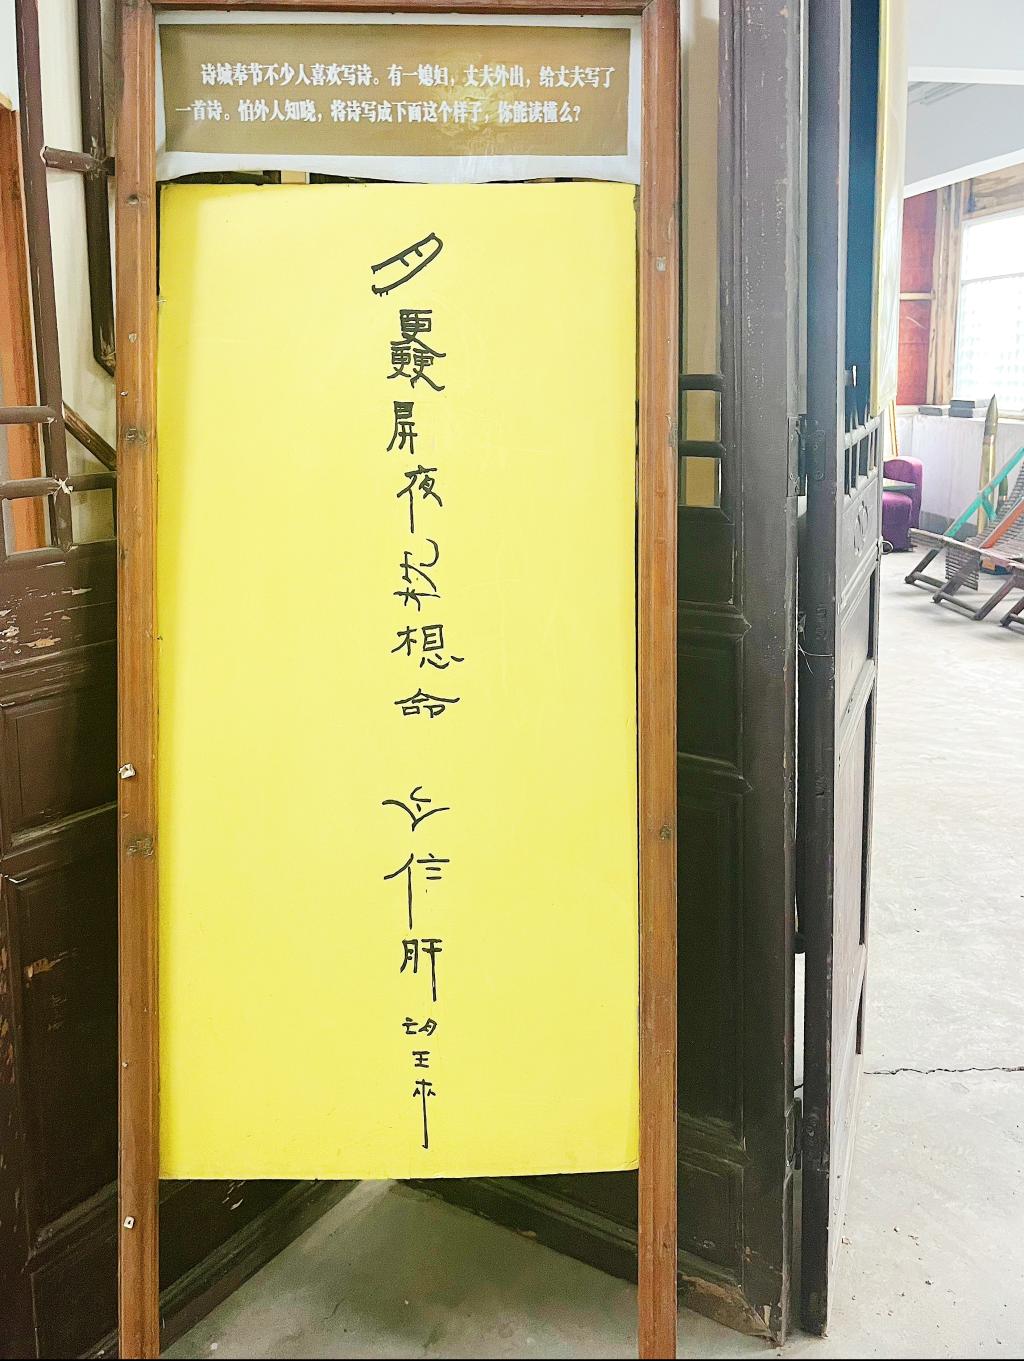 诗城奉节不少人喜欢写诗。有一媳妇，丈夫外出，给丈夫写了
一首诗。怕外人知晓，将诗写成下面这个样子，你能读懂么？
月更更更屏夜想命
心信肝望來